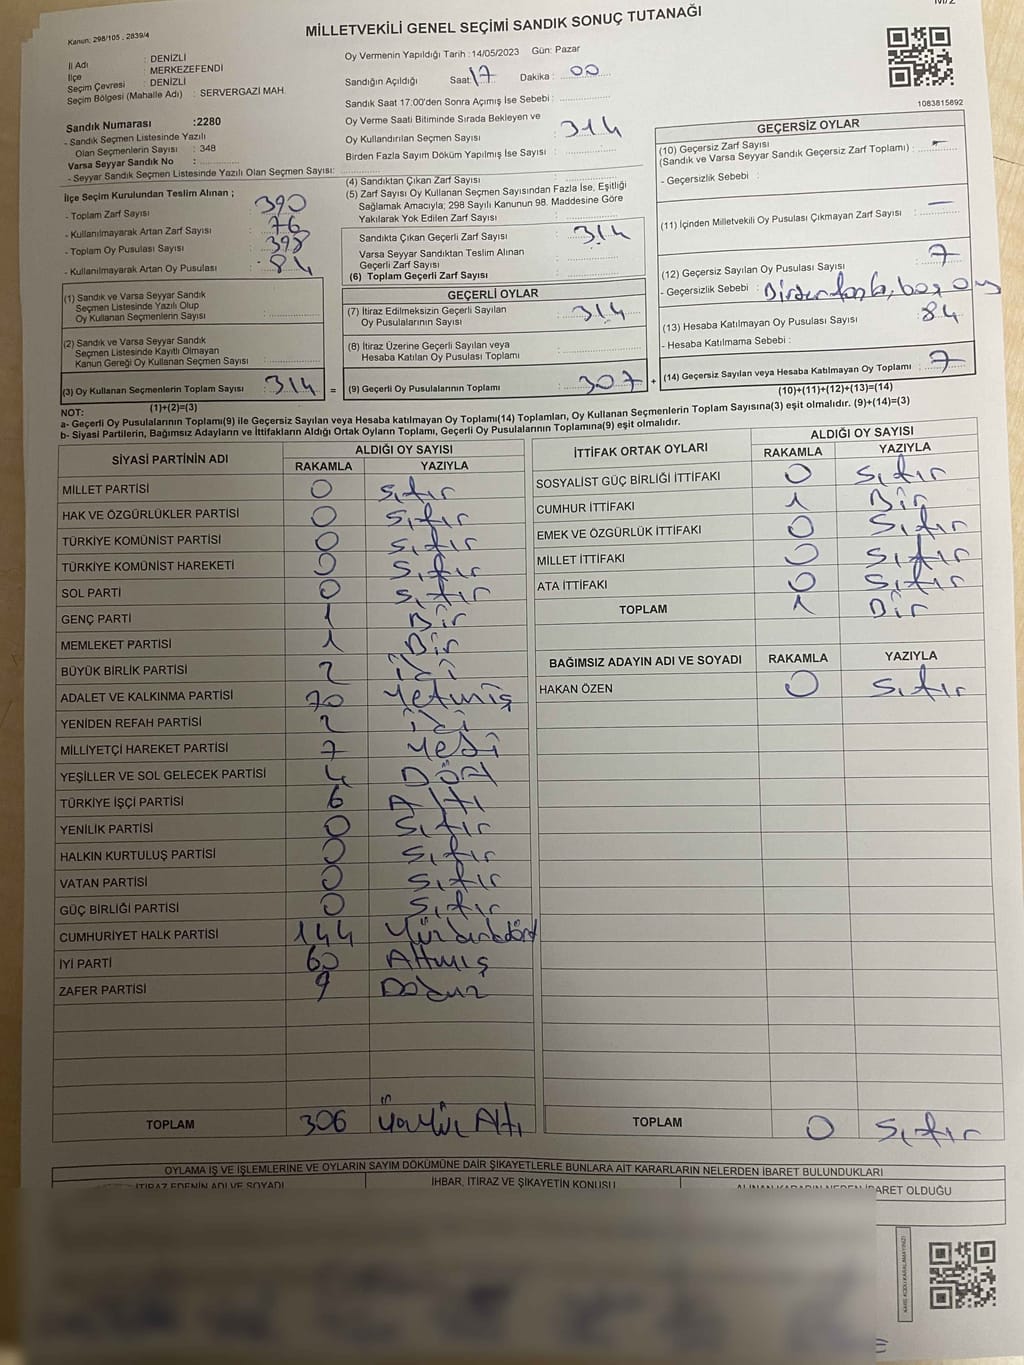 M/2
Kanun: 298/105 : 2839/4
MİLLETVEKİLİ GENEL SEÇİMİ SANDIK SONUÇ TUTANAĞI
İl Adı : DENİZLİ
İlçe : MERKEZEFENDİ
Seçim Çevresi : DENİZLİ
Seçim Bölgesi (Mahalle Adı) : SERVERGAZİ MAH.
Sandık Numarası :2280
- Sandık Seçmen Listesinde Yazılı
Olan Seçmenlerin Sayısı : 348
Varsa Seyyar Sandık No :
- Seyyar Sandık Seçmen Listesinde Yazılı Olan Seçmen Sayısı:
Oy Vermenin Yapıldığı Tarih :14/05/2023 Gün: Pazar
Sandığın Açıldığı Saat: 17 Dakika : 00
Sandık Saat 17:00'den Sonra Açımış İse Sebebi :
Oy Verme Saati Bitiminde Sırada Bekleyen ve
Oy Kullandırılan Seçmen Sayısı : 314
Birden Fazla Sayım Döküm Yapılmış İse Sayısı :
1083815692
İlçe Seçim Kurulundan Teslim Alınan ;
- Toplam Zarf Sayısı : 390
- Kullanılmayarak Artan Zarf Sayısı : 76
- Toplam Oy Pusulası Sayısı : 398
- Kullanılmayarak Artan Oy Pusulası : 84
(1) Sandık ve Varsa Seyyar Sandık
Seçmen Listesinde Yazılı Olup
Oy Kullanan Seçmenlerin Sayısı :
(2) Sandık ve Varsa Seyyar Sandık
Seçmen Listesinde Kayıtlı Olmayan
Kanun Gereği Oy Kullanan Seçmen Sayısı :
(3) Oy Kullanan Seçmenlerin Toplam Sayısı 314 =
(1)+(2)=(3)
(4) Sandıktan Çıkan Zarf Sayısı :
(5) Zarf Sayısı Oy Kullanan Seçmen Sayısından Fazla İse, Eşitliği
Sağlamak Amacıyla; 298 Sayılı Kanunun 98. Maddesine Göre
Yakılarak Yok Edilen Zarf Sayısı :
Sandıkta Çıkan Geçerli Zarf Sayısı : 314
Varsa Seyyar Sandıktan Teslim Alınan
Geçerli Zarf Sayısı :
(6) Toplam Geçerli Zarf Sayısı :
GEÇERLİ OYLAR
(7) İtiraz Edilmeksizin Geçerli Sayılan
Oy Pusulalarının Sayısı : 314
(8) İtiraz Üzerine Geçerli Sayılan veya
Hesaba Katılan Oy Pusulası Toplamı :
(9) Geçerli Oy Pusulalarının Toplamı : 307 +
GEÇERSİZ OYLAR
(10) Geçersiz Zarf Sayısı
(Sandık ve Varsa Seyyar Sandık Geçersiz Zarf Toplamı) : -
- Geçersizlik Sebebi :
(11) İçinden Milletvekili Oy Pusulası Çıkmayan Zarf Sayısı : -
(12) Geçersiz Sayılan Oy Pusulası Sayısı : 7
- Geçersizlik Sebebi : Birden fazla, boş oy
(13) Hesaba Katılmayan Oy Pusulası Sayısı : 84
- Hesaba Katılmama Sebebi :
(14) Geçersiz Sayılan veya Hesaba Katılmayan Oy Toplamı : 7
(10)+(11)+(12)+(13)=(14)
NOT:
a- Geçerli Oy Pusulalarının Toplamı(9) ile Geçersiz Sayılan veya Hesaba katılmayan Oy Toplamı(14) Toplamları, Oy Kullanan Seçmenlerin Toplam Sayısına(3) eşit olmalıdır. (9)+(14)=(3)
b- Siyasi Partilerin, Bağımsız Adayların ve İttifakların Aldığı Ortak Oyların Toplamı, Geçerli Oy Pusulalarının Toplamına(9) eşit olmalıdır.
SİYASİ PARTİNİN ADI ALDIĞI OY SAYISI
RAKAMLA YAZIYLA
MİLLET PARTİSİ 0 Sıfır
HAK VE ÖZGÜRLÜKLER PARTİSİ 0 Sıfır
TÜRKİYE KOMÜNİST PARTİSİ 0 Sıfır
TÜRKİYE KOMÜNİST HAREKETİ 0 Sıfır
SOL PARTİ 0 Sıfır
GENÇ PARTİ 1 Bir
MEMLEKET PARTİSİ 1 Bir
BÜYÜK BİRLİK PARTİSİ 2 iki
ADALET VE KALKINMA PARTİSİ 70 Yetmiş
YENİDEN REFAH PARTİSİ 2 iki
MİLLİYETÇİ HAREKET PARTİSİ 7 Yedi
YEŞİLLER VE SOL GELECEK PARTİSİ 4 Dört
TÜRKİYE İŞÇİ PARTİSİ 6 Altı
YENİLİK PARTİSİ 0 Sıfır
HALKIN KURTULUŞ PARTİSİ 0 Sıfır
VATAN PARTİSİ 0 Sıfır
GÜÇ BİRLİĞİ PARTİSİ 0 Sıfır
CUMHURİYET HALK PARTİSİ 144 Yüzkırkdört
İYİ PARTİ 60 Altmış
ZAFER PARTİSİ 9 Dokuz
TOPLAM 306 Üçyüz Altı
İTTİFAK ORTAK OYLARI ALDIĞI OY SAYISI
RAKAMLA YAZIYLA
SOSYALİST GÜÇ BİRLİĞİ İTTİFAKI 0 Sıfır
CUMHUR İTTİFAKI 1 Bir
EMEK VE ÖZGÜRLÜK İTTİFAKI 0 Sıfır
MİLLET İTTİFAKI 0 Sıfır
ATA İTTİFAKI 0 Sıfır
TOPLAM 1 Bir
BAĞIMSIZ ADAYIN ADI VE SOYADI RAKAMLA YAZIYLA
HAKAN ÖZEN 0 Sıfır
TOPLAM 0 Sıfır
OYLAMA İŞ VE İŞLEMLERİNE VE OYLARIN SAYIM DÖKÜMÜNE DAİR ŞİKAYETLERLE BUNLARA AİT KARARLARIN NELERDEN İBARET BULUNDUKLARI
İTİRAZ EDENİN ADI VE SOYADI İHBAR, İTİRAZ VE ŞİKAYETİN KONUSU ALINAN KARARIN NEDEN İBARET OLDUĞU